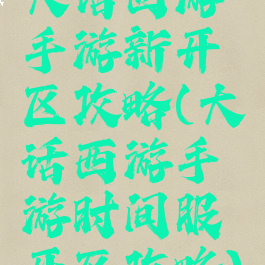 大话西游
手游新开
区攻略(大
话西游手
游时间服
开区攻略)